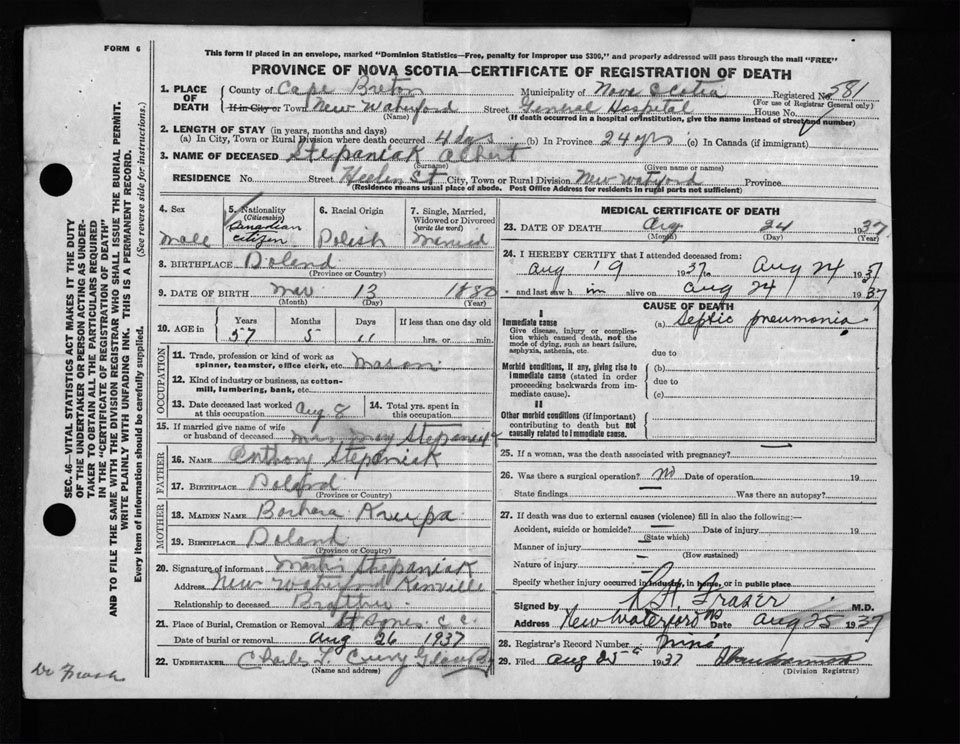 FORM 6
This form if placed in an envelope, marked "Dominion Statistics—Free, penalty for improper use $300," and properly addressed will pass through the mail "FREE"
PROVINCE OF NOVA SCOTIA—CERTIFICATE OF REGISTRATION OF DEATH
1. PLACE OF DEATH
County of Cape Breton Municipality of Nova Scotia Registered No. 581
(For use of Registrar General only)
If in City or Town New Waterford Street General Hospital House No.
(Name) (If death occurred in a hospital or institution, give the name instead of street and number)
2. LENGTH OF STAY (in years, months and days)
(a) In City, Town or Rural Division where death occurred 4 dys (b) In Province 24 yrs (c) In Canada (if immigrant)
3. NAME OF DECEASED Stepaniak Albert
(Surname) (Given name or names)
RESIDENCE No Street St City, Town or Rural Division New Watford Province
(Residence means usual place of abode. Post Office Address for residents in rural parts not sufficient)
4. Sex
male
5. Nationality (Citizenship)
Canadian citizen
6. Racial Origin
Polish
7. Single, Married, Widowed or Divorced (write the word)
Married
8. BIRTHPLACE Poland
(Province or Country)
9. DATE OF BIRTH Mar 13 1880
(Month) (Day) (Year)
10. AGE in
Years Months Days If less than one day old
57 5 11 hrs. or min.
OCCUPATION
11. Trade, profession or kind of work as spinner, teamster, office clerk, etc. Mason
12. Kind of industry or business, as cotton-mill, lumbering, bank, etc.
13. Date deceased last worked at this occupation Aug 8
14. Total yrs. spent in this occupation
15. If married give name of wife or husband of deceased Mrs Mary
FATHER
16. NAME Anthony Stepaniak
17. BIRTHPLACE Poland
(Province or Country)
MOTHER
18. MAIDEN NAME Barbara Krupa
19. BIRTHPLACE Poland
(Province or Country)
20. Signature of informant Stepaniak
Address New Waterford
Relationship to deceased Brother
21. Place of Burial, Cremation or Removal St Agnes C C.
Date of burial or removal Aug 26 1937
22. UNDERTAKER Charles L Curry Glace B
(Name and address)
MEDICAL CERTIFICATE OF DEATH
23. DATE OF DEATH Aug 24 1937
(Month) (Day) (Year)
24. I HEREBY CERTIFY that I attended deceased from:
Aug 19 1937 to Aug 24 1937
and last saw h im alive on Aug 24 1937
CAUSE OF DEATH
I
Immediate cause
Give disease, injury or complication which caused death, not the mode of dying, such as heart failure, asphyxia, asthenia, etc.
(a) Septic pneumonia
due to
Morbid conditions, if any, giving rise to immediate cause (stated in order proceeding backwards from immediate cause).
(b)
due to
(c)
II
Other morbid conditions (if important) contributing to death but not causally related to immediate cause.
25. If a woman, was the death associated with pregnancy?
26. Was there a surgical operation? No Date of operation 19
State findings Was there an autopsy?
27. If death was due to external causes (violence) fill in also the following:—
Accident, suicide or homicide? Date of injury 19
(State which)
Manner of injury
(How sustained)
Nature of injury
Specify whether injury occurred in industry, in home, or in public place
Signed by Fraser M.D.
Address New Waterford NS Date Aug 25 1937
28. Registrar's Record Number
29. Filed Aug 25 1937
(Division Registrar)
SEC. 46—VITAL STATISTICS ACT MAKES IT THE DUTY
OF THE UNDERTAKER OR PERSON ACTING AS UNDERTAKER TO OBTAIN ALL THE PARTICULARS REQUIRED
IN THE "CERTIFICATE OF REGISTRATION OF DEATH"
AND TO FILE THE SAME WITH THE DIVISION REGISTRAR WHO SHALL ISSUE THE BURIAL PERMIT.
WRITE PLAINLY WITH UNFADING INK. THIS IS A PERMANENT RECORD.
Every item of information should be carefully supplied. (See reverse side for instructions.)